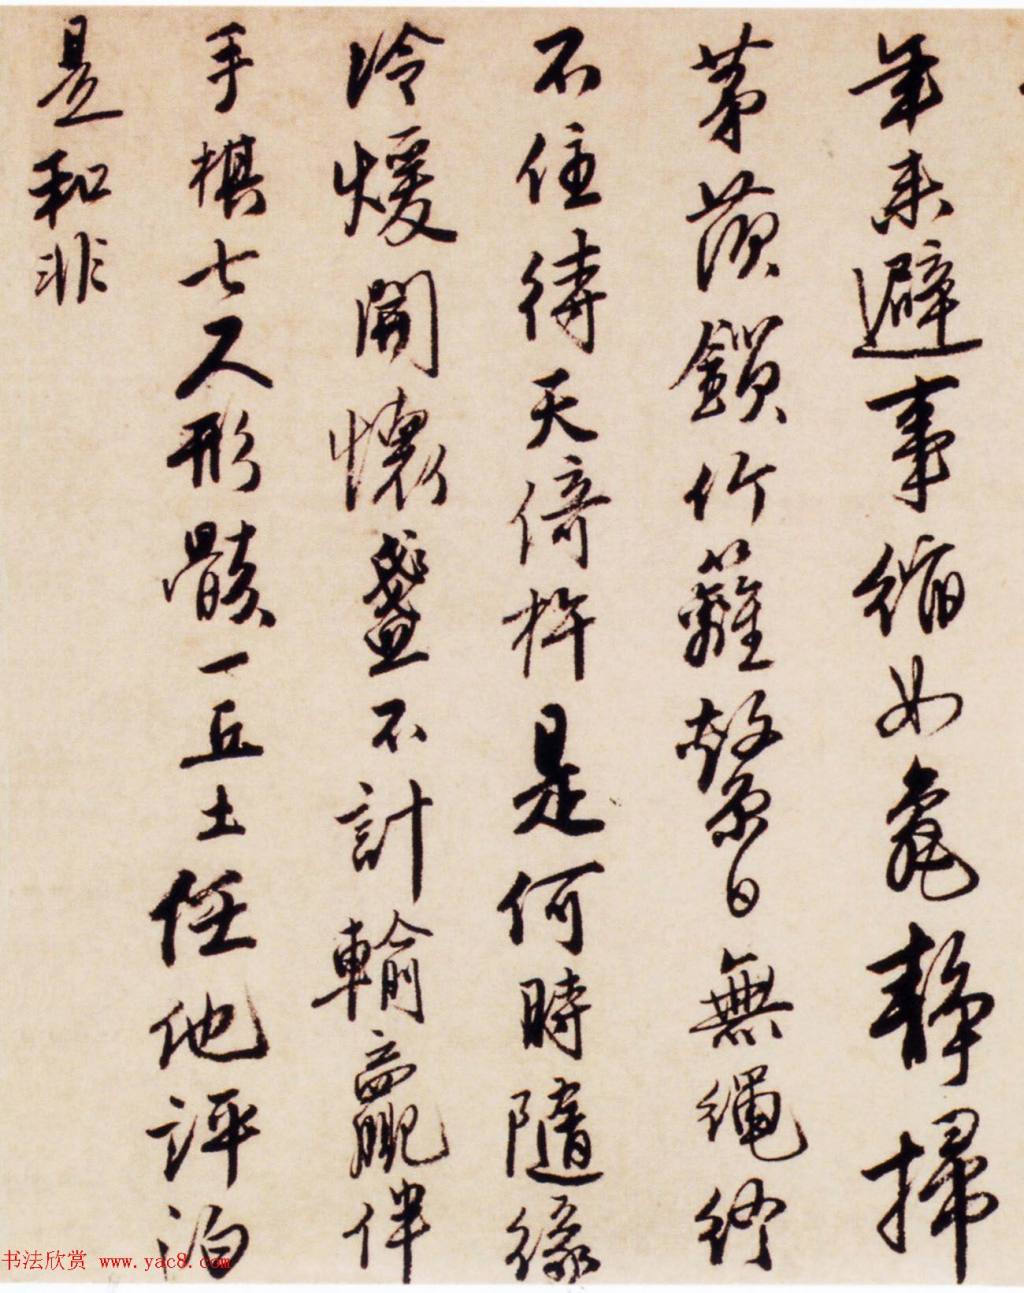 年来避事縮如龜静掃
茅茨鎖竹籬繫日無繩終
不住待天倚杵是何時隨緣
冷煖開懷盞不計輸贏伴
手棋七尺形骸一丘土任他評泊
是和非
书法欣赏 www.yac8.com